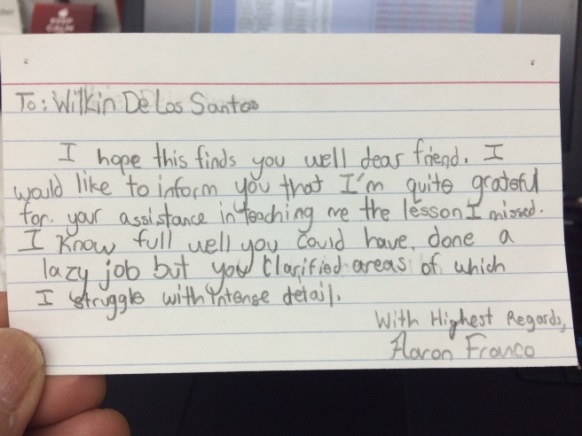 KEEP
CALM
To: Wilkin De Los Santos
I hope this finds you well dear friend. I
would like to inform you that I'm quite grateful
for your assistance in teaching me the lesson I missed.
I know full well you could have done a
lazy job but you clarified areas of which
I struggle with intense detail.
With Highest Regards,
Aaron Franco